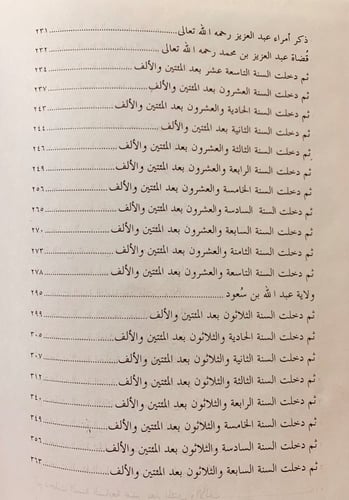 ذكر أمراء عبد العزيز رحمه الله تعالى ........ ٢٣١
قُضاة عبد العزيز بن محمد رحمه الله تعالى ........ ٢٣٢
ثم دخلت السنة التاسعة عشر بعد المئتين والألف ........ ٢٣٤
ثم دخلت السنة العشرون بعد المئتين والألف ........ ٢٣٧
ثم دخلت السنة الحادية والعشرون بعد المئتين والألف ........ ٢٤٣
ثم دخلت السنة الثانية بعد المئتين والألف ........ ٢٤٤
ثم دخلت السنة الثالثة والعشرون بعد المئتين والألف ........ ٢٤٦
ثم دخلت السنة الرابعة والعشرون بعد المئتين والألف ........ ٢٤٩
ثم دخلت السنة الخامسة والعشرون بعد المئتين والألف ........ ٢٥٦
ثم دخلت السنة السادسة والعشرون بعد المئتين والألف ........ ٢٦٥
ثم دخلت السنة السابعة والعشرون بعد المئتين والألف ........ ٢٧٠
ثم دخلت السنة الثامنة والعشرون بعد المئتين والألف ........ ٢٧٣
ثم دخلت السنة التاسعة والعشرون بعد المئتين والألف ........ ٢٧٨
ولاية عبد الله بن سُعود ........ ٢٩٥
ثم دخلت السنة الثلاثون بعد المئتين والألف ........ ٢٩٩
ثم دخلت السنة الحادية والثلاثون بعد المئتين والألف ........ ٣٠٥
ثم دخلت السنة الثانية والثلاثون بعد المئتين والألف ........ ٣٠٧
ثم دخلت السنة الثالثة والثلاثون بعد المئتين والألف ........ ٣١٢
ثم دخلت السنة الرابعة والثلاثون بعد المئتين والألف ........ ٣٤٠
ثم دخلت السنة الخامسة والثلاثون بعد المئتين والألف ........ ٣٤٩
ثم دخلت السنة السادسة والثلاثون بعد المئتين والألف ........ ٣٥٦
ثم دخلت السنة السابعة والثلاثون بعد المئتين والألف ........ ٣٦٣